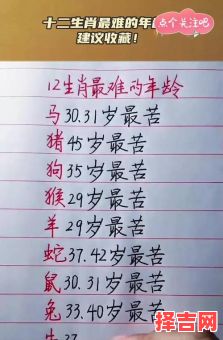 十二生肖最难的年
点个关注吧
建议收藏!
12生肖最难的年龄
马30.31岁最苦
猪45岁最苦
狗35岁最苦
猴29岁最苦
羊29岁最苦
蛇37.42岁最苦
鼠30.31岁最苦
兔33.40岁最苦
牛37
择吉网